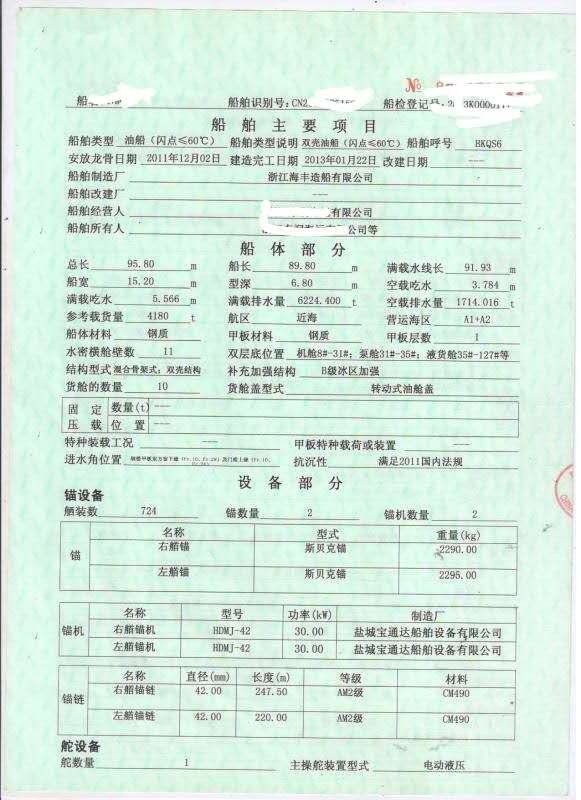 №
船舶识别号:CN2 船检登记号: K0000
船 舶 主 要 项 目
船舶类型 油船（闪点≤60℃） 船舶类型说明 双壳油船（闪点≤60℃） 船舶呼号 BKQS6
安放龙骨日期 2011年12月02日 建造完工日期 2013年01月22日 改建日期 ---
船舶制造厂 浙江海丰造船有限公司
船舶改建厂 ---
船舶经营人 有限公司
船舶所有人 公司等
船 体 部 分
总长 95.80 m 船长 89.80 m 满载水线长 91.93 m
船宽 15.20 m 型深 6.80 m 空载吃水 3.784 m
满载吃水 5.566 m 满载排水量 6224.400 t 空载排水量 1714.016 t
参考载货量 4180 t 航区 近海 营运海区 A1+A2
船体材料 钢质 甲板材料 钢质 甲板层数 1
水密横舱壁数 11 双层底位置 机舱8#-31#; 泵舱31#-35#; 液货舱35#-127#等
结构型式 混合骨架式; 双壳结构 补充加强结构 B级冰区加强
货舱的数量 10 货舱盖型式 转动式油舱盖
固 定 数量(t) ---
压 载 位 置 ---
特种装载工况 --- 甲板特种载荷或装置 ---
进水角位置 抗沉性 满足2011国内法规
设 备 部 分
锚设备
舾装数 724 锚数量 2 锚机数量 2
名称 型式 重量(kg)
锚 右艏锚 斯贝克锚 2290.00
左艏锚 斯贝克锚 2295.00
名称 型号 功率(kW) 制造厂
锚机 右艏锚机 HDMJ-42 30.00 盐城宝通达船舶设备有限公司
左艏锚机 HDMJ-42 30.00 盐城宝通达船舶设备有限公司
名称 直径(mm) 长度(m) 等级 材料
锚链 右艏锚链 42.00 247.50 AM2级 CM490
左艏锚链 42.00 220.00 AM2级 CM490
舵设备
舵数量 1 主操舵装置型式 电动液压